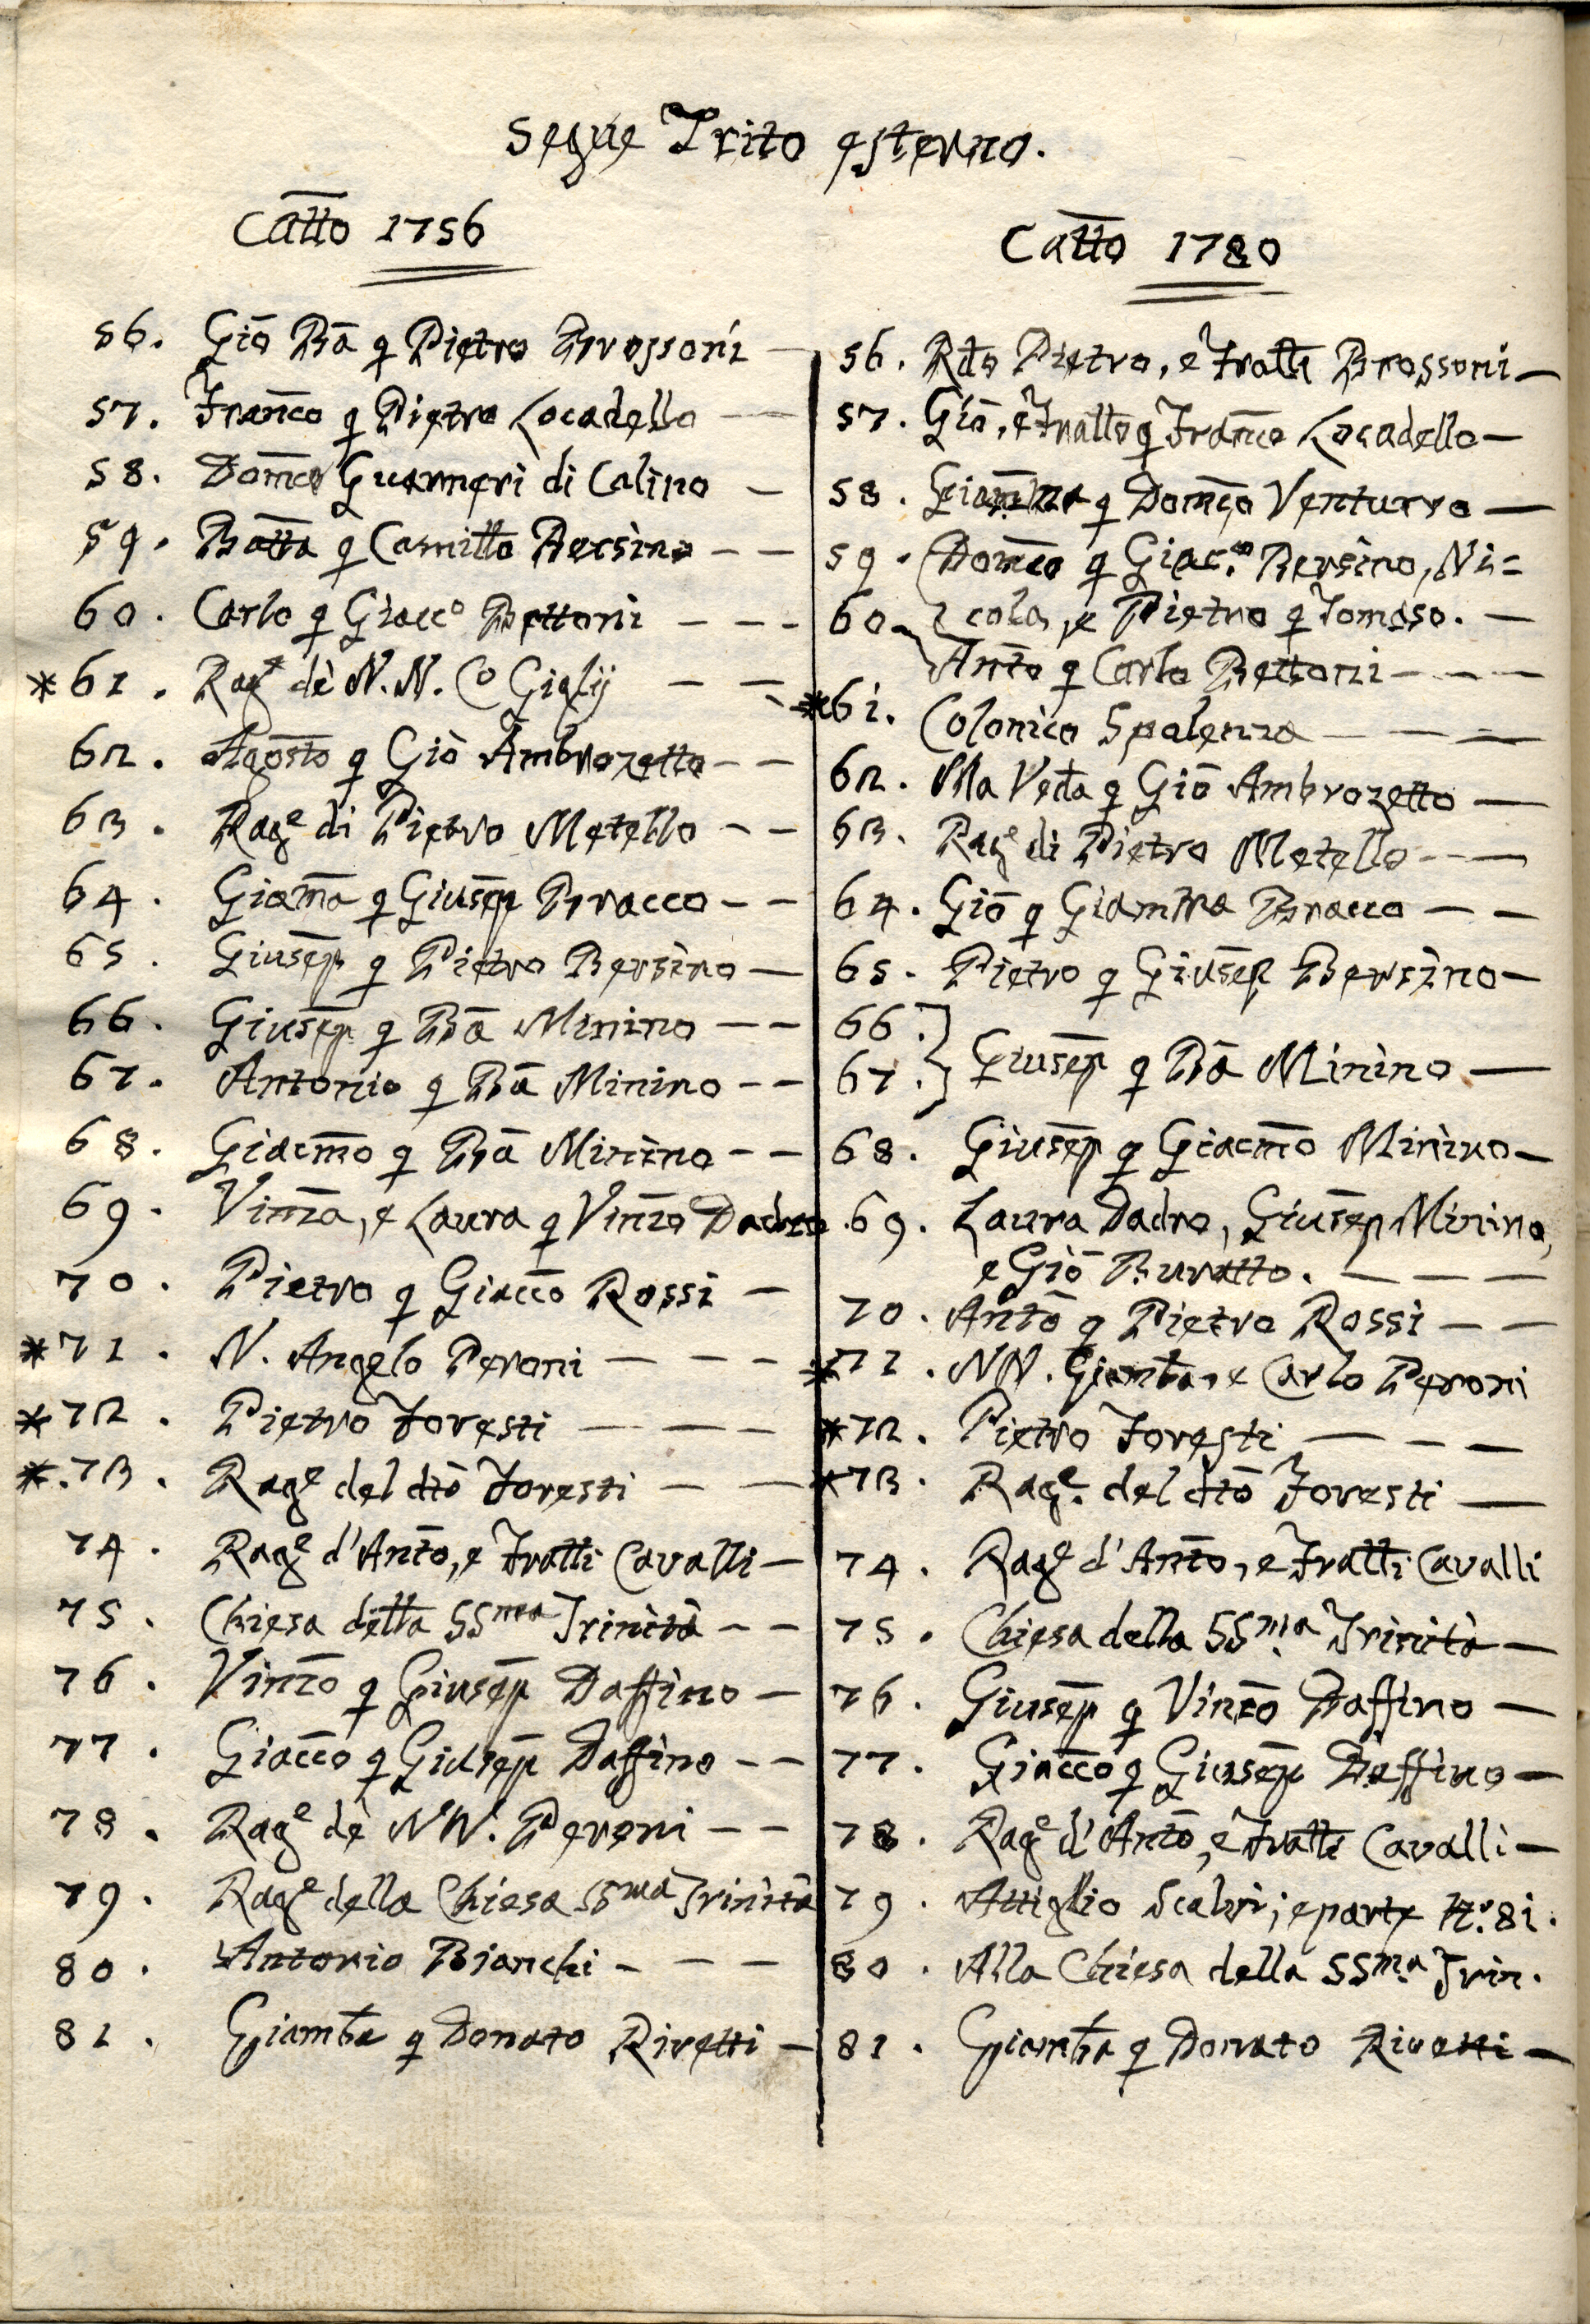 Segue Trito esterno.
Catto 1756
56. Giō Bā q Pietro Brossoni —
57. Franco q Pietro Locadello — —
58. Domco Guarneri di Calino —
59. Batta q Camillo Bersino — —
60. Carlo q Giacco Bettoni — — —
* 61. Rage dè N.N. Co Giglij — —
62. Agosto q Giò Ambrozetto — —
63. Rage di Pietro Metello — —
64. Giamā q Giusep Bracco — —
65. Giusep q Pietro Bersino —
66. Giusep q Bā Minino — —
67. Antonio q Bā Minino — —
68. Giacmo q Bā Minino — —
69. Vinza, e Laura q Vinzo Dadro
70. Pietro q Giacco Rossi —
* 71. N. Angelo Peroni — — —
* 72. Pietro Foresti — — —
* 73. Rage del dto Foresti — —
74. Rage d'Anto, e Fratti Cavalli —
75. Chiesa della SSma Trinità — —
76. Vinzo q Giusep Daffino —
77. Giacco q Giusep Daffino — —
78. Rage dè NN. Peroni — —
79. Rage della Chiesa SSma Trinità
80. Antonio Bianchi — — —
81. Giambta q Donato Rivetti —
Catto 1780
56. Rdo Pietro, e Fratti Brossoni —
57. Giō, e Fratto q Franco Locadello —
58. q Domco Venturro —
59. Domco q Giac.mo Bersino, Ni=
60. cola, e Pietro q Tomaso. —
Anto q Carlo Bettoni — — —
* 61. Colonico Spalenza — — —
62. Ma Veda q Giō Ambrozetto —
63. Rage di Pietro Metello — —
64. Giō q Giambta Bracco — —
65. Pietro q Giusep Bersino —
66.
67. Giusep q Bā Minino —
68. Giusep q Giacmo Minino —
69. Laura Dadro, Giusep Minino,
e Giō Buratto. — — —
70. Anto q Pietro Rossi — —
* 71. NN. Giambta, e Carlo Peroni
* 72. Pietro Foresti — — —
* 73. Rage. del dto Foresti —
74. Rage d'Anto, e Fratti Cavalli
75. Chiesa della SSma Trinità —
76. Giusep q Vinzo Daffino —
77. Giacco q Giusep Daffino —
78. Rage d'Anto, e Fratti Cavalli —
79. Attiglio Scalvi; e parte N.o 81.
80. Alla Chiesa della SSma Trin.
81. Giambta q Donato Rivetti —